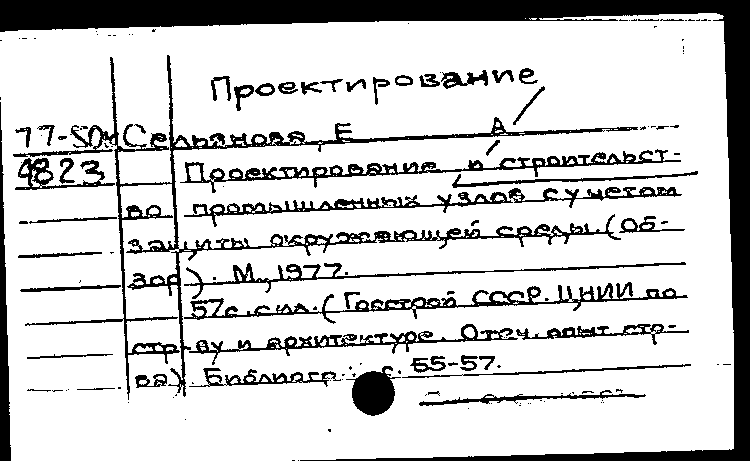 Проектирование
77-504 Сельянова, Е А
4823 Проектирование и строительст-
во промышленных узлов с учетом
защиты окружающей среды. (Об-
зор). М., 1977.
57с. с ил. (Госстрой СССР. ЦНИИ по
стр-ву и архитектуре. Отеч. опыт стр-
ва). Библиогр.: с. 55-57.